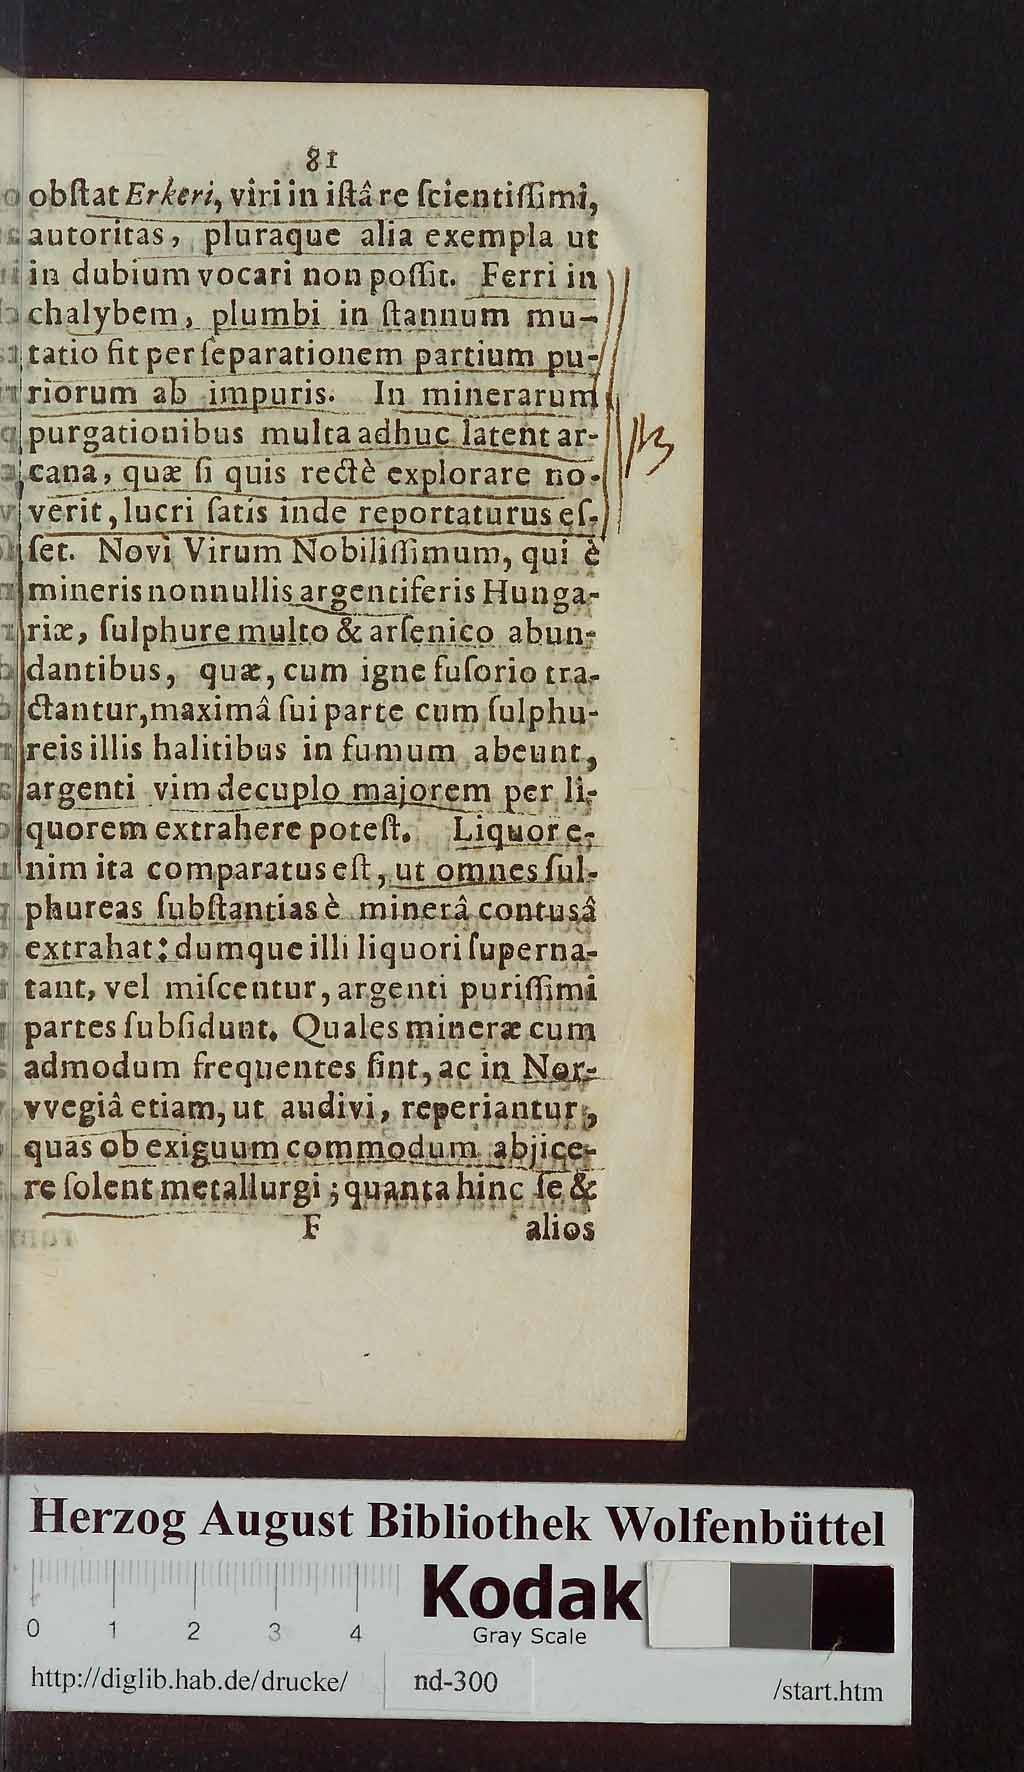 81
obſtat Erkeri, viri in iſtâ re ſcientiſſimi,
autoritas, pluraque alia exempla ut
in dubium vocari non poſſit. Ferri in
chalybem, plumbi in ſtannum mu-
tatio fit per ſeparationem partium pu-
riorum ab impuris. In minerarum
purgationibus multa adhuc latent ar-
cana, quæ ſi quis rectè explorare no-
verit, lucri ſatis inde reportaturus eſ-
ſet. Novi Virum Nobiliſſimum, qui è
mineris nonnullis argentiferis Hunga-
riæ, ſulphure multo & arſenico abun-
dantibus, quæ, cum igne fuſorio tra-
ctantur, maximâ ſui parte cum ſulphu-
reis illis halitibus in fumum abeunt,
argenti vim decuplo majorem per li-
quorem extrahere poteſt. Liquor e-
nim ita comparatus eſt, ut omnes ſul-
phureas ſubſtantias è minerâ contusâ
extrahat: dumque illi liquori ſuperna-
tant, vel miſcentur, argenti puriſſimi
partes ſubſidunt. Quales mineræ cum
admodum frequentes ſint, ac in Nor-
vvegiâ etiam, ut audivi, reperiantur,
quas ob exiguum commodum abjice-
re ſolent metallurgi; quanta hinc ſe &
F alios
Herzog August Bibliothek Wolfenbüttel
Kodak
Gray Scale
0 1 2 3 4
http://diglib.hab.de/drucke/ nd-300 /start.htm